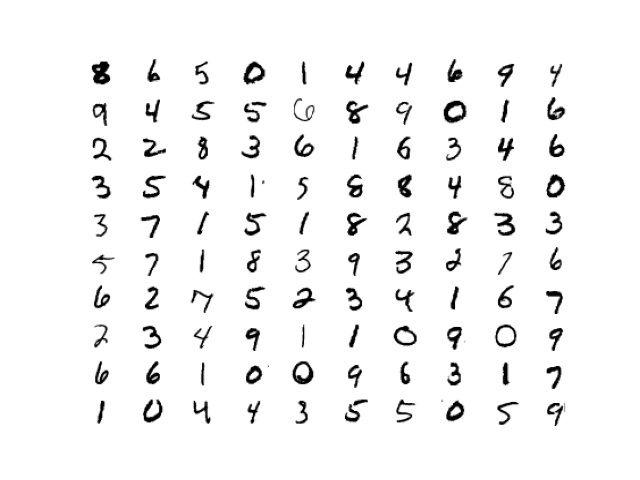 8 6 5 0 1 4 4 6 9 4
9 4 5 5 6 8 9 0 1 6
2 2 8 3 6 1 6 3 4 6
3 5 4 1 5 8 8 4 8 0
3 7 1 5 1 8 2 8 3 3
5 7 1 8 3 9 3 2 7 6
6 2 7 5 2 3 4 1 6 7
2 3 4 9 1 1 0 9 0 9
6 6 1 0 0 9 6 3 1 7
1 0 4 4 3 5 5 0 5 9